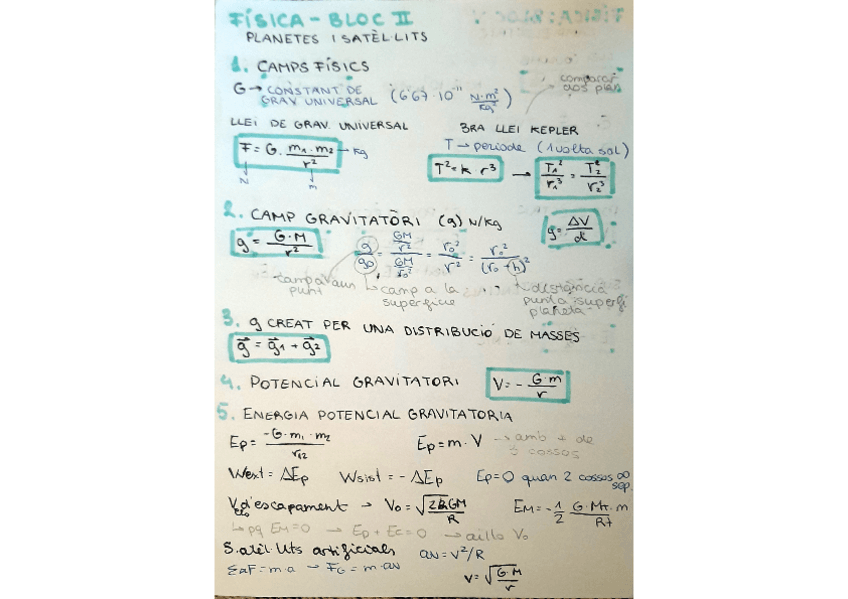 FÍSICA - BLOC II
PLANETES I SATÈL·LITS
1. CAMPS FÍSICS
G → CONSTANT DE GRAV UNIVERSAL (6'67·10⁻¹¹ N·m²/kg²)
comparar dos plan
LLEI DE GRAV. UNIVERSAL
F = G · m₁·m₂/r² — kg
N
m
3RA LLEI KEPLER
T → període (1 volta sol)
T² = k r³ → T₁²/r₁³ = T₂²/r₂³
2. CAMP GRAVITATÒRI (g) N/kg
g = G·M/r²
g/g₀ = (GM/r²)/(GM/r₀²) = r₀²/r² = r₀²/(r₀+h)²
g = ΔV/d
camp a un punt
camp a la superfície
distància punt a superfí planeta
3. g CREAT PER UNA DISTRIBUCIÓ DE MASSES
g⃗ = g⃗₁ + g⃗₂
4. POTENCIAL GRAVITATORI V = - G·m/r
5. ENERGIA POTENCIAL GRAVITATORIA
Ep = -G·m₁·m₂/r₁₂
Ep = m·V → amb + de cossos
Wext = ΔEp Wsist = -ΔEp Ep=0 quan 2 cossos ∞ sep.
d'escapament → V₀ = GM/R
EM = -1/2 G·Mt·m/Rt
↳ pq EM=0 → Ep + Ec = 0 → aillo V₀
Satèl·lits artificials aN = v²/R
F = m·a → FG = m·aN
v = √G·M/r